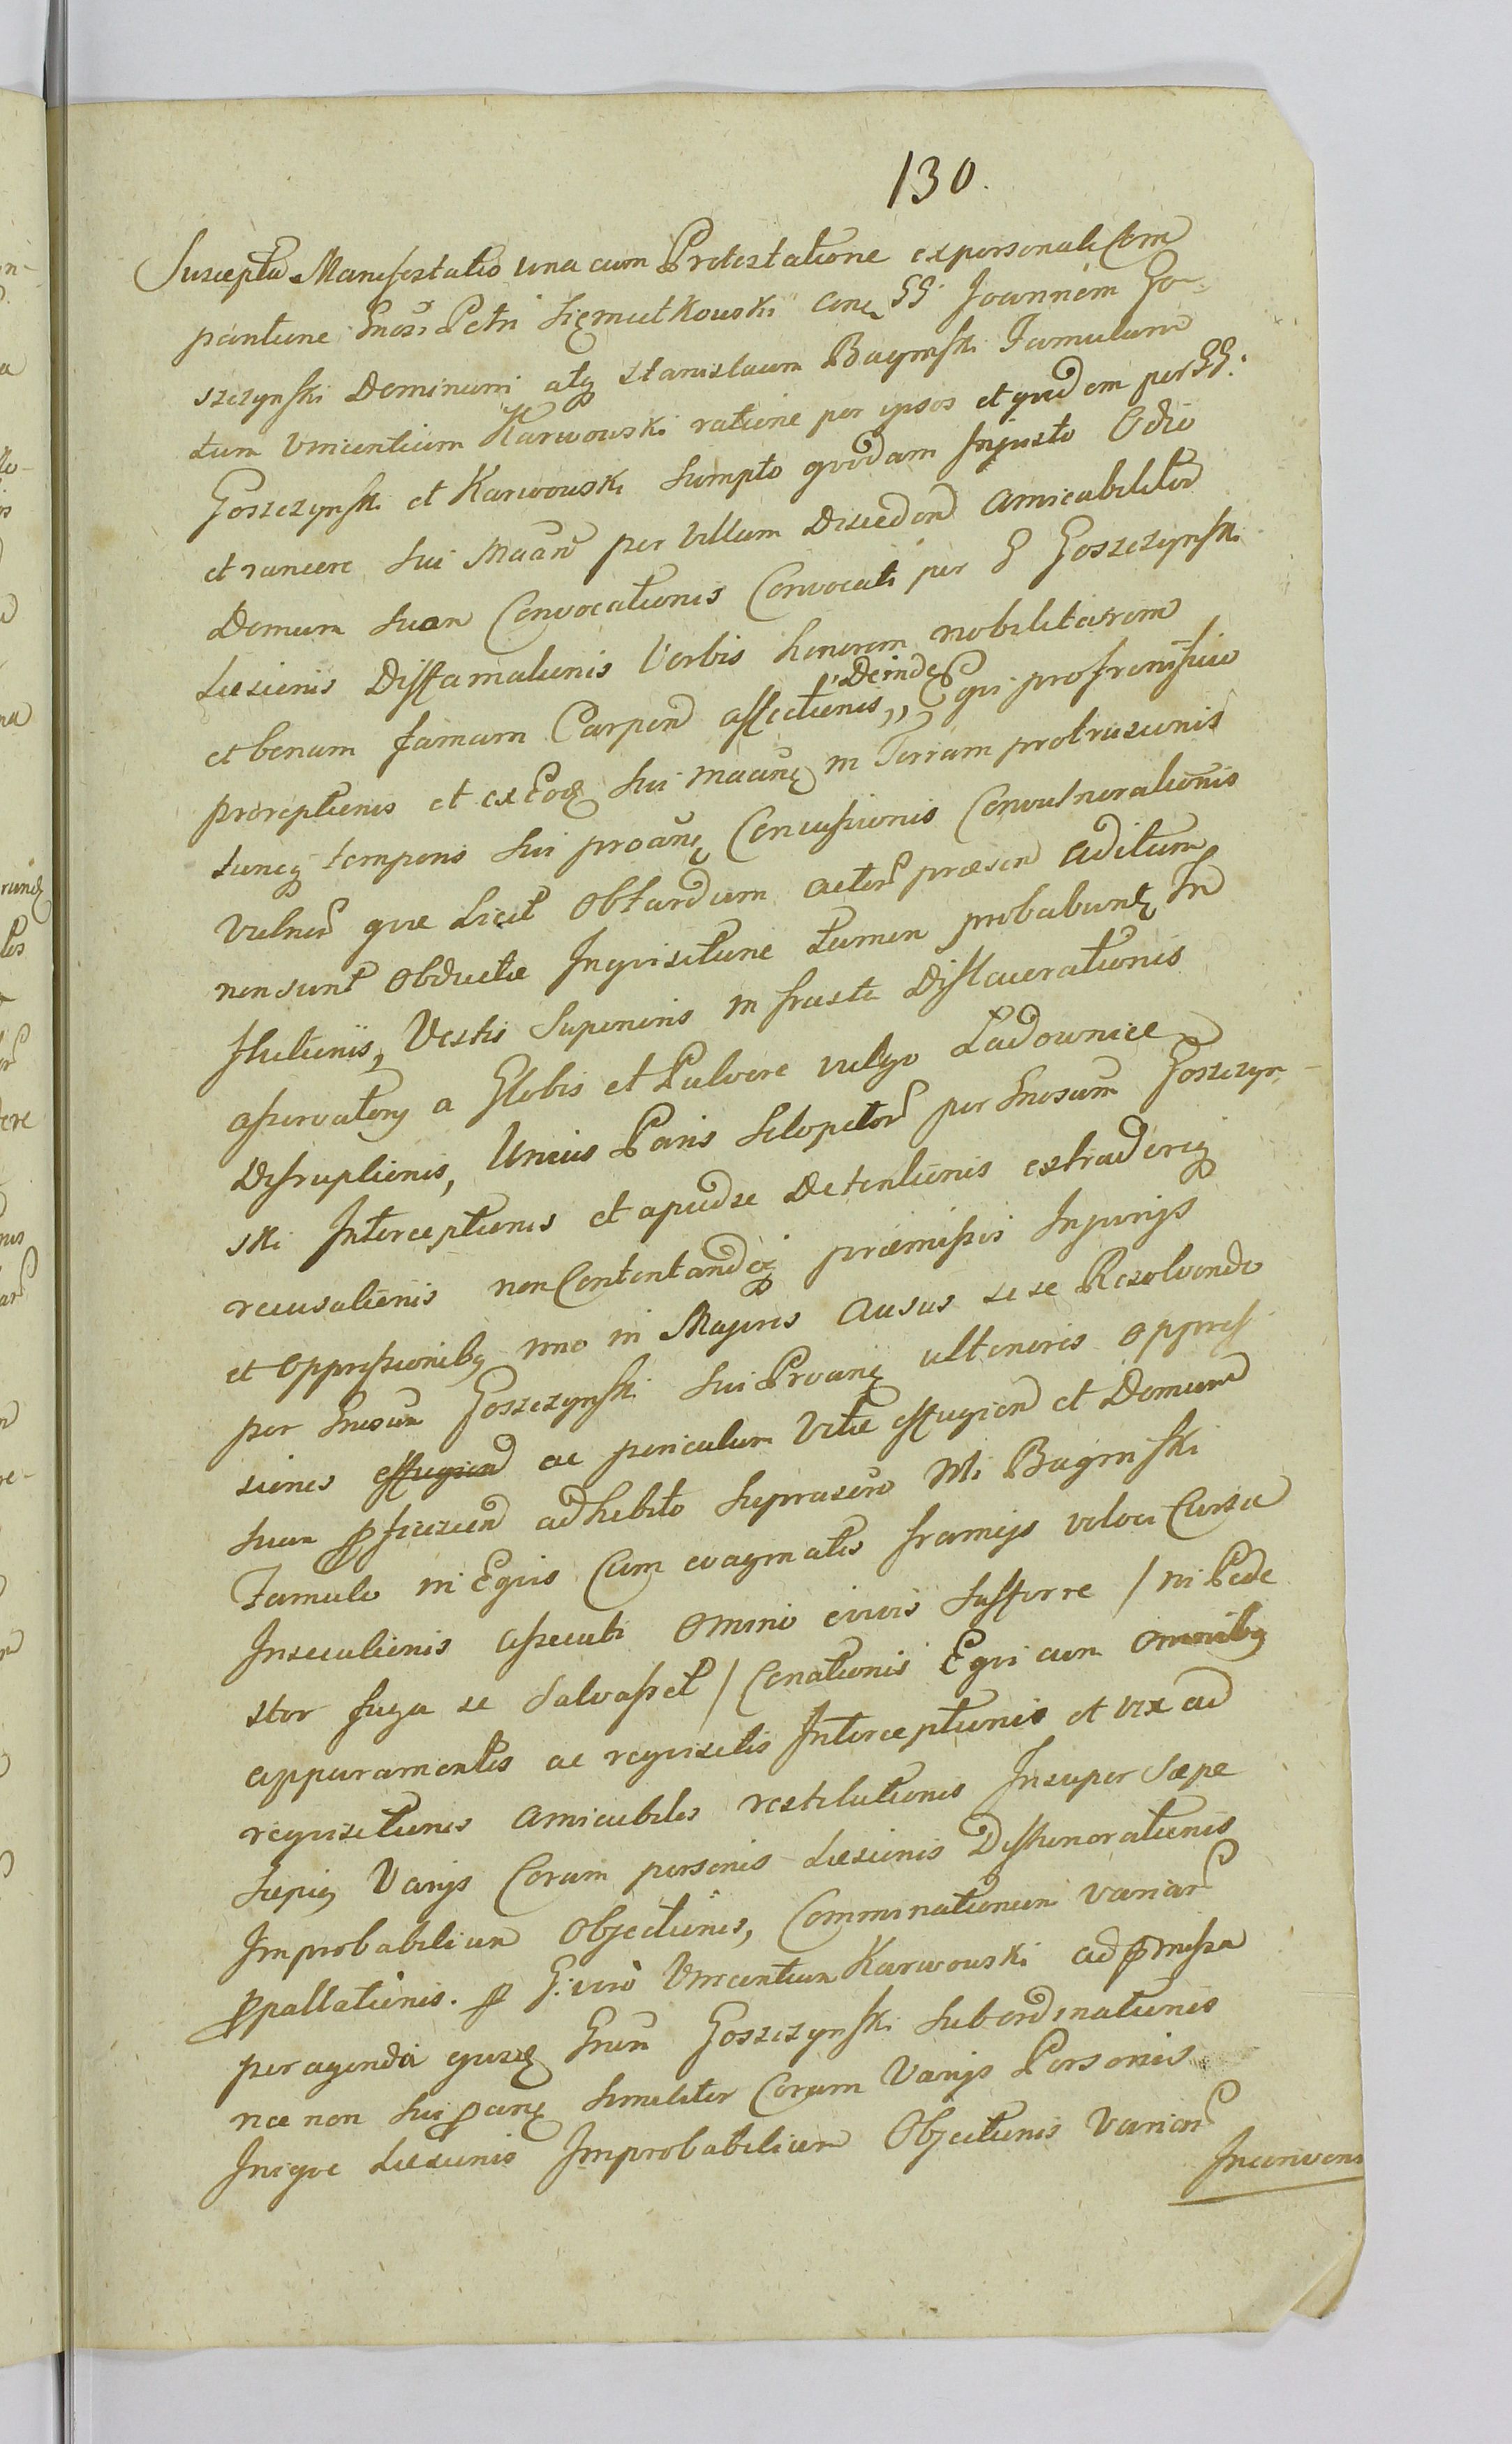 130.
Suscepta Manifestatio una cum Protestatione ex personali Com
paritione Gnosi Petri Siemutkowski conq GG. Joannem Go-
szczynski Dominum atq Stanislaum Baginski Famulum
tum Vincentium Karwowski ratione per ipsos et quidem per GG.
Goszczynski et Karwowski sumpto quodam Injusto Odio
et rancore sui Maan per Villam Discedend amicabiliter
Domum suam Convocationis Convocati per G Goszczynski
Laesionis Diffamationis Verbis honorem nobilitarem
et bonam famam Carpend affectionis,, Deinde
proreptionis et ex Eoq sui maanq in Terram protrusionis
tuncq temporis sui proanq Concussionis Convulnerationis
Vulner quae Licet Ob tardum actor praesen aditum
non sunt obductae Inquisitione tamen probabuntq In
stitutionis, Vestis Superioris in frusta Dislacerationis
aservatorij a Globis et Pulvere vulgo Ladownice
Disruptionis, Unius Paris Sclopetor per Gnosum Goszczyn-
ski Interceptionis et apud se Detentionis extraderiq
recusationis non Contentandoq praemissis Injurijs
et Oppressionibq imo in Majores Ausus se se Resolvendo
per Gnosum Goszczynski sui Proanq ulterioris oppres
siones effugiend ac periculum Vitae effugiend et Domum
suam proficiscend adhibito suprascro M. Baginski
Famulo in Equis Cum evaginatis frameis veloci Cursu
Insecutionis assecuti Omnino eivis Sufferre / ni Pede
stor fuga se Salvasset / Conationis Equi cum Omnibq
apparamentis ac requisitis Interceptionis et vix ad
requisitiones amicabiles restitutionis Insuper Saepe
Saepiq Varijs Coram personis Laesionis Dishonorationis
Improbabilium Objectionis, Comminationum variar
propallationis. p G: vero Vincentium Karwowski ad pmissa
peragenda ejusq Gnem Goszczynski Subordinationis
nec non sui proanq similiter Coram Varijs Personis
Inique Laesionis Improbabilium Objectionis Variar
Inconven